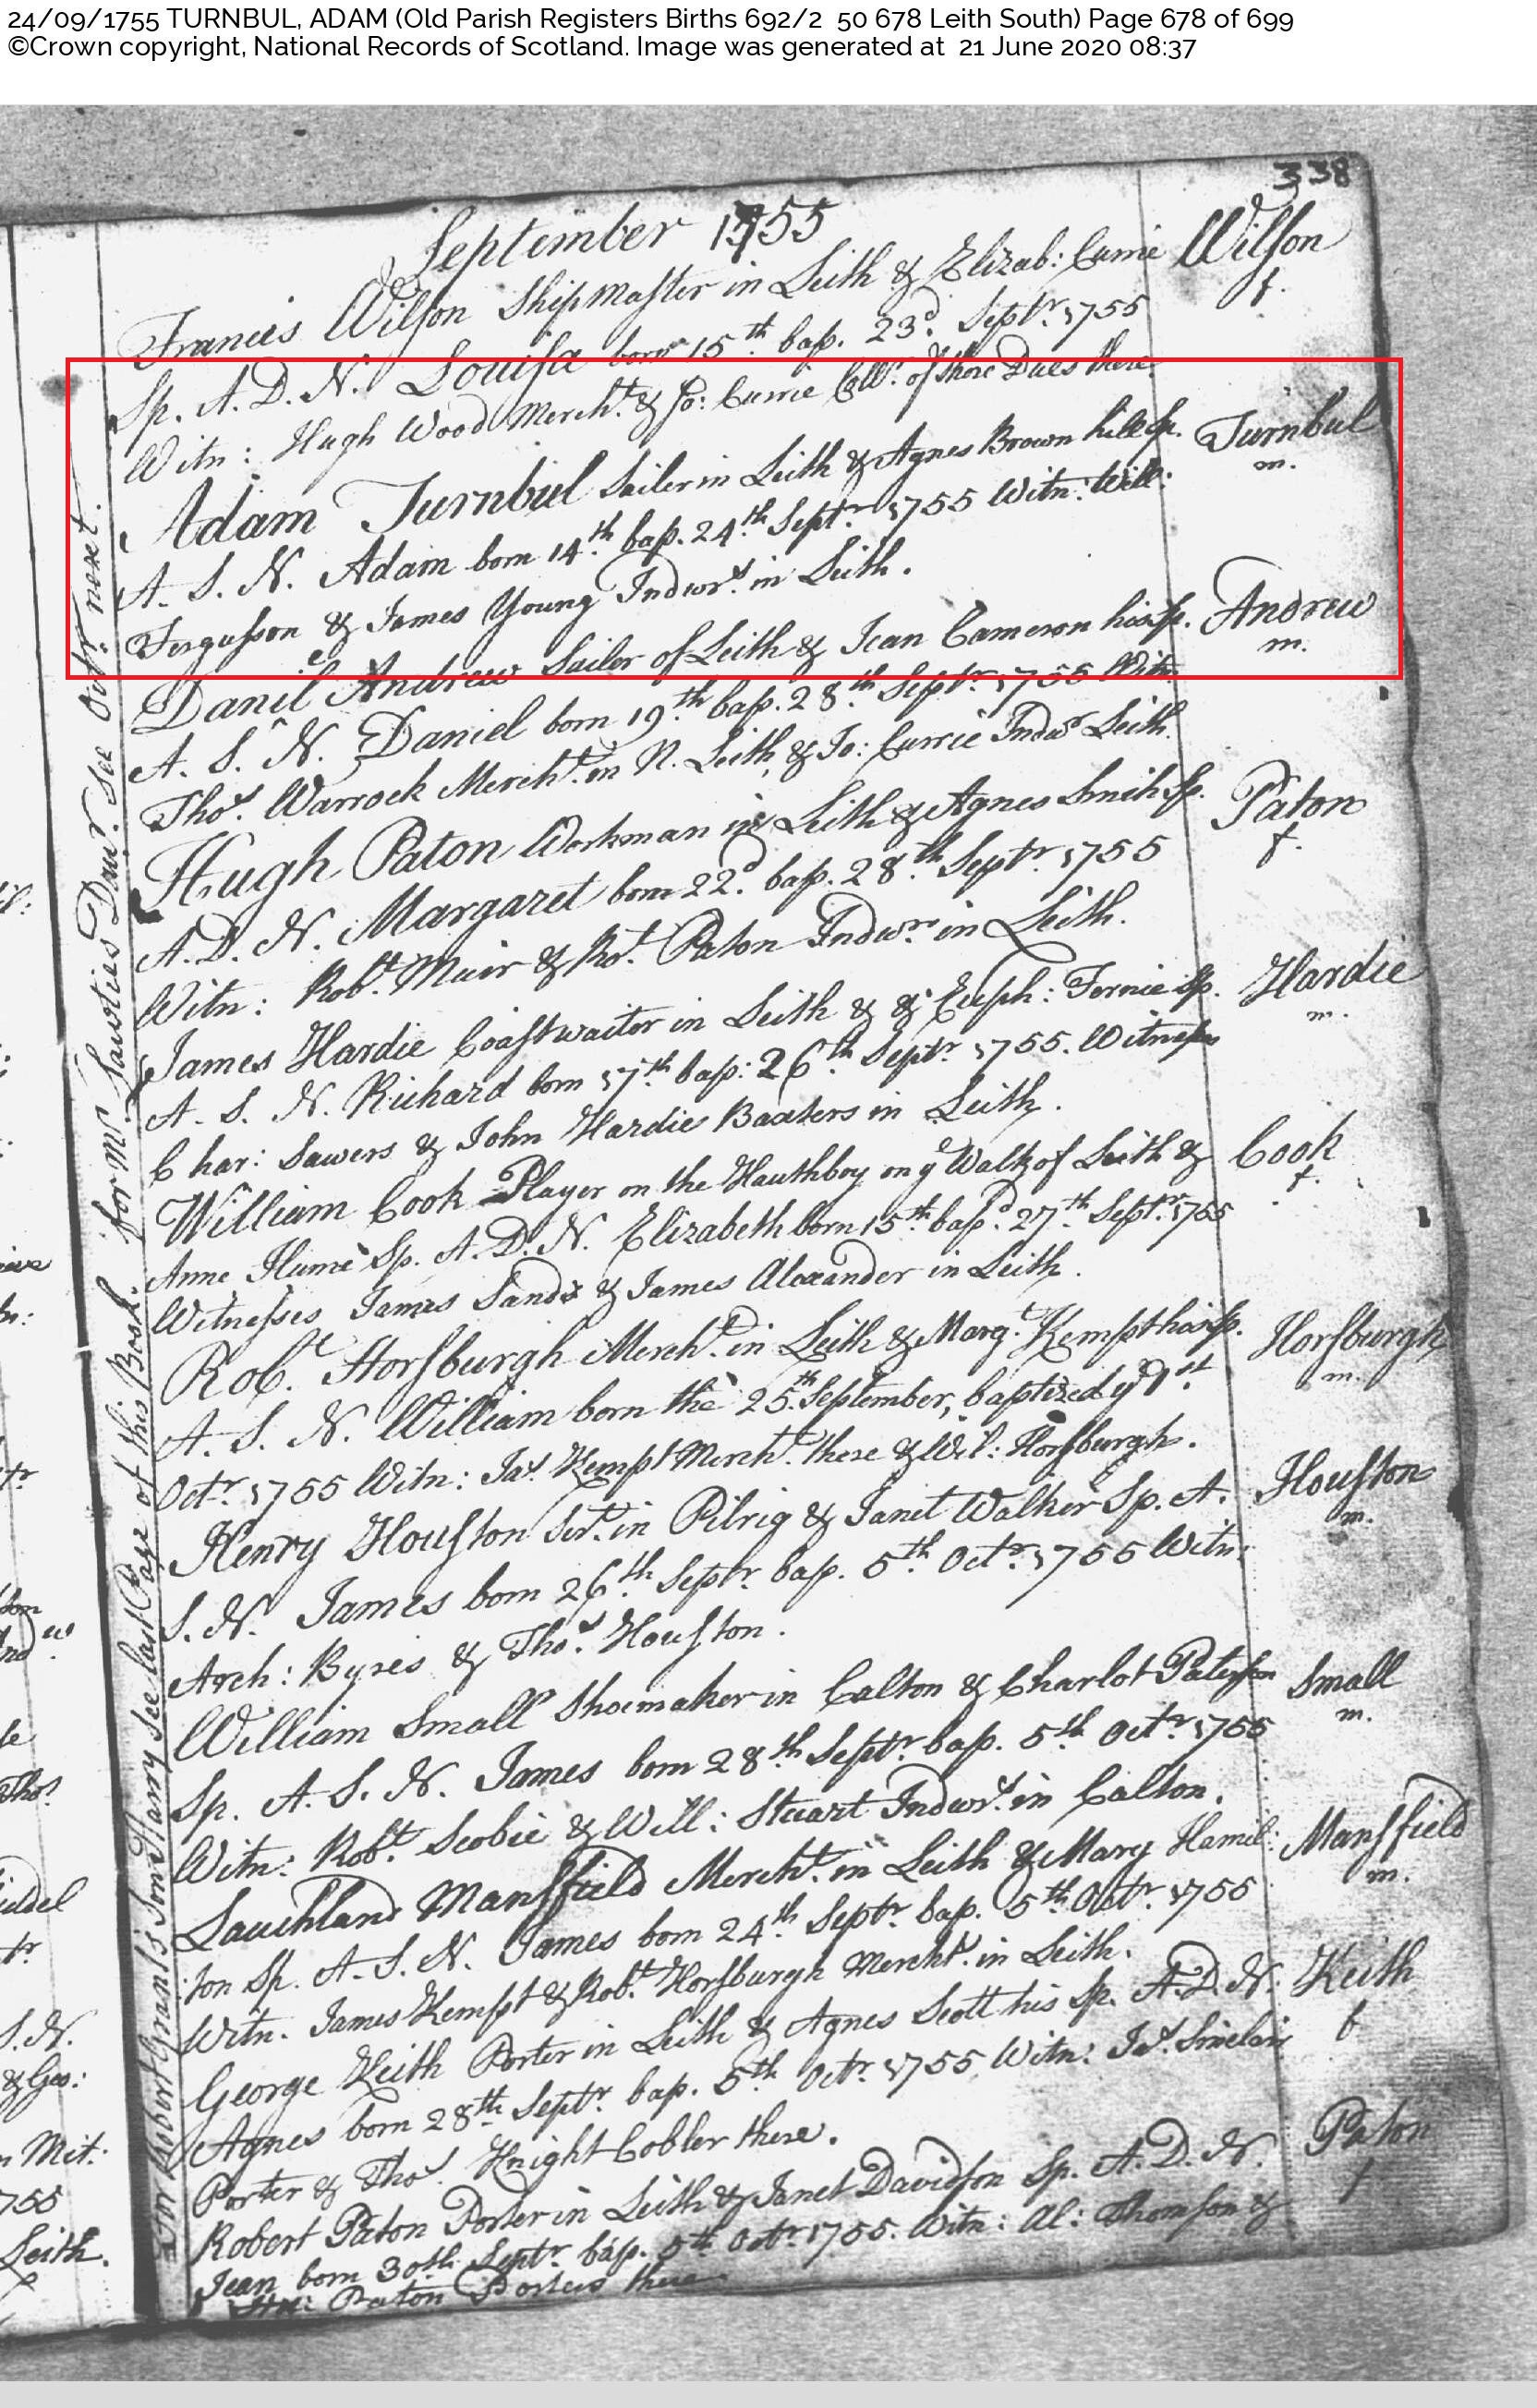 24/09/1755 TURNBUL, ADAM (Old Parish Registers Births 692/2 50 678 Leith South) Page 678 of 699
©Crown copyright, National Records of Scotland. Image was generated at 21 June 2020 08:37
338
September 1755
Francis Wilson Shipmaster in Leith & Elizab: Currie Wilson
f.
Sp. A. D. N. Louisa born 15th bap. 23d. Septr. 1755
Witn: Hugh Wood Mercht. & Jo: Currie Collr. of Shore Dues there.
Adam Turnbul Sailer in Leith & Agnes Brown hill Sp. Turnbul
m.
A. S. N. Adam born 14th bap. 24th Septr. 1755 Witn: Will:
Fergusson & James Young Indwrs. in Leith.
Daniel Andrew Sailor of Leith & Jean Cameron his Sp. Andrew
m.
A. S. N. Daniel born 19th bap. 28th Septr. 1755 Witn:
Thos. Warrock Mercht. in N. Leith, & Jo: Currie Indwr Leith.
Hugh Paton Workman in Leith & Agnes Smith Sp. Paton
f.
A. D. N. Margaret born 22d. bap. 28th Septr. 1755
Witn: Robt. Muir & Ro. Paton Indwrs in Leith.
James Hardie Coastwaiter in Leith & & Euph: Fernie Sp. Hardie
m.
A. S. N. Richard born 17th bap: 26th Septr. 1755. Witnesses
Char: Sawers & John Hardie Baxters in Leith.
William Cook Player on the Hauthboy on ye Walk of Leith & Cook
f.
Anne Hume Sp. A. D. N. Elizabeth born 15th bapd. 27th Septr. 1755
Witnesses James Sands & James Alexander in Leith.
Robt. Horsburgh Mercht. in Leith & Margt. Kempt his Sp. Horsburgh
m.
A. S. N. William born the 25th September, baptized ye 1st
Octr. 1755 Witn: Jas. Kempt Mercht. there & Wil: Horsburgh.
Henry Houston Sert. in Pilrig & Janet Walker Sp. A. Houston
m.
S. N. James born 26th Septr. bap. 5th Octr. 1755 Witn:
Arch: Byres & Thos. Houston.
William Small Shoemaker in Calton & Charlot Paterson Small
m.
Sp. A. S. N. James born 28th Septr. bap. 5th Octr. 1755
Witn: Robt. Scobie & Will: Stuart Indwrs. in Calton.
Lauchland Mansffield Mercht. in Leith & Mary Hamil: Mansffield
m.
:ton Sp. A. S. N. James born 24th Septr. bap. 5th Octr. 1755
Witn. James Kempt & Robt. Horsburgh Merchts. in Leith.
George Keith Porter in Leith & Agnes Scott his Sp. A. D. N. Keith
f
Agnes born 28th Septr. bap. 5th Octr. 1755 Witn: Jas. Sinclair
Porter & Thos. Knight Cobler there.
Robert Paton Porter in Leith & Janet Davidson Sp. A. D. N. Paton
f
Jean born 30th Septr. bap. 5th Octr. 1755. Witn: Al: Thomson &
Paton Porters there
For Robert Grant's Son Harry See last Page of this Book. for Mr. Lawties Daur. See Octr. next.